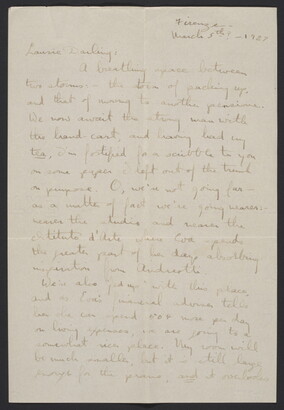 Firenze -
March 5th - 1927
Laurie Darling:
A breathing space between
two storms - the storm of packing up,
and that of moving to another pensione.
We now await the strong man with
the hand-cart, and having had my
tea, I'm fortified for a scribble to you
on some paper I left out of the trunk
on purpose. O, we're not going far -
as a matter of fact we're going nearer -
nearer the studio and nearer the
where Eva spends
the greater part of her days absorbing
inspiration from Andreotti.
We're also with this place,
and as Eva's financial adviser tells
her she can spend more per day
on living expenses, we are going to a
somewhat nicer place. My room will
be much smaller, but it is still large
enough for the piano, and it overlooks